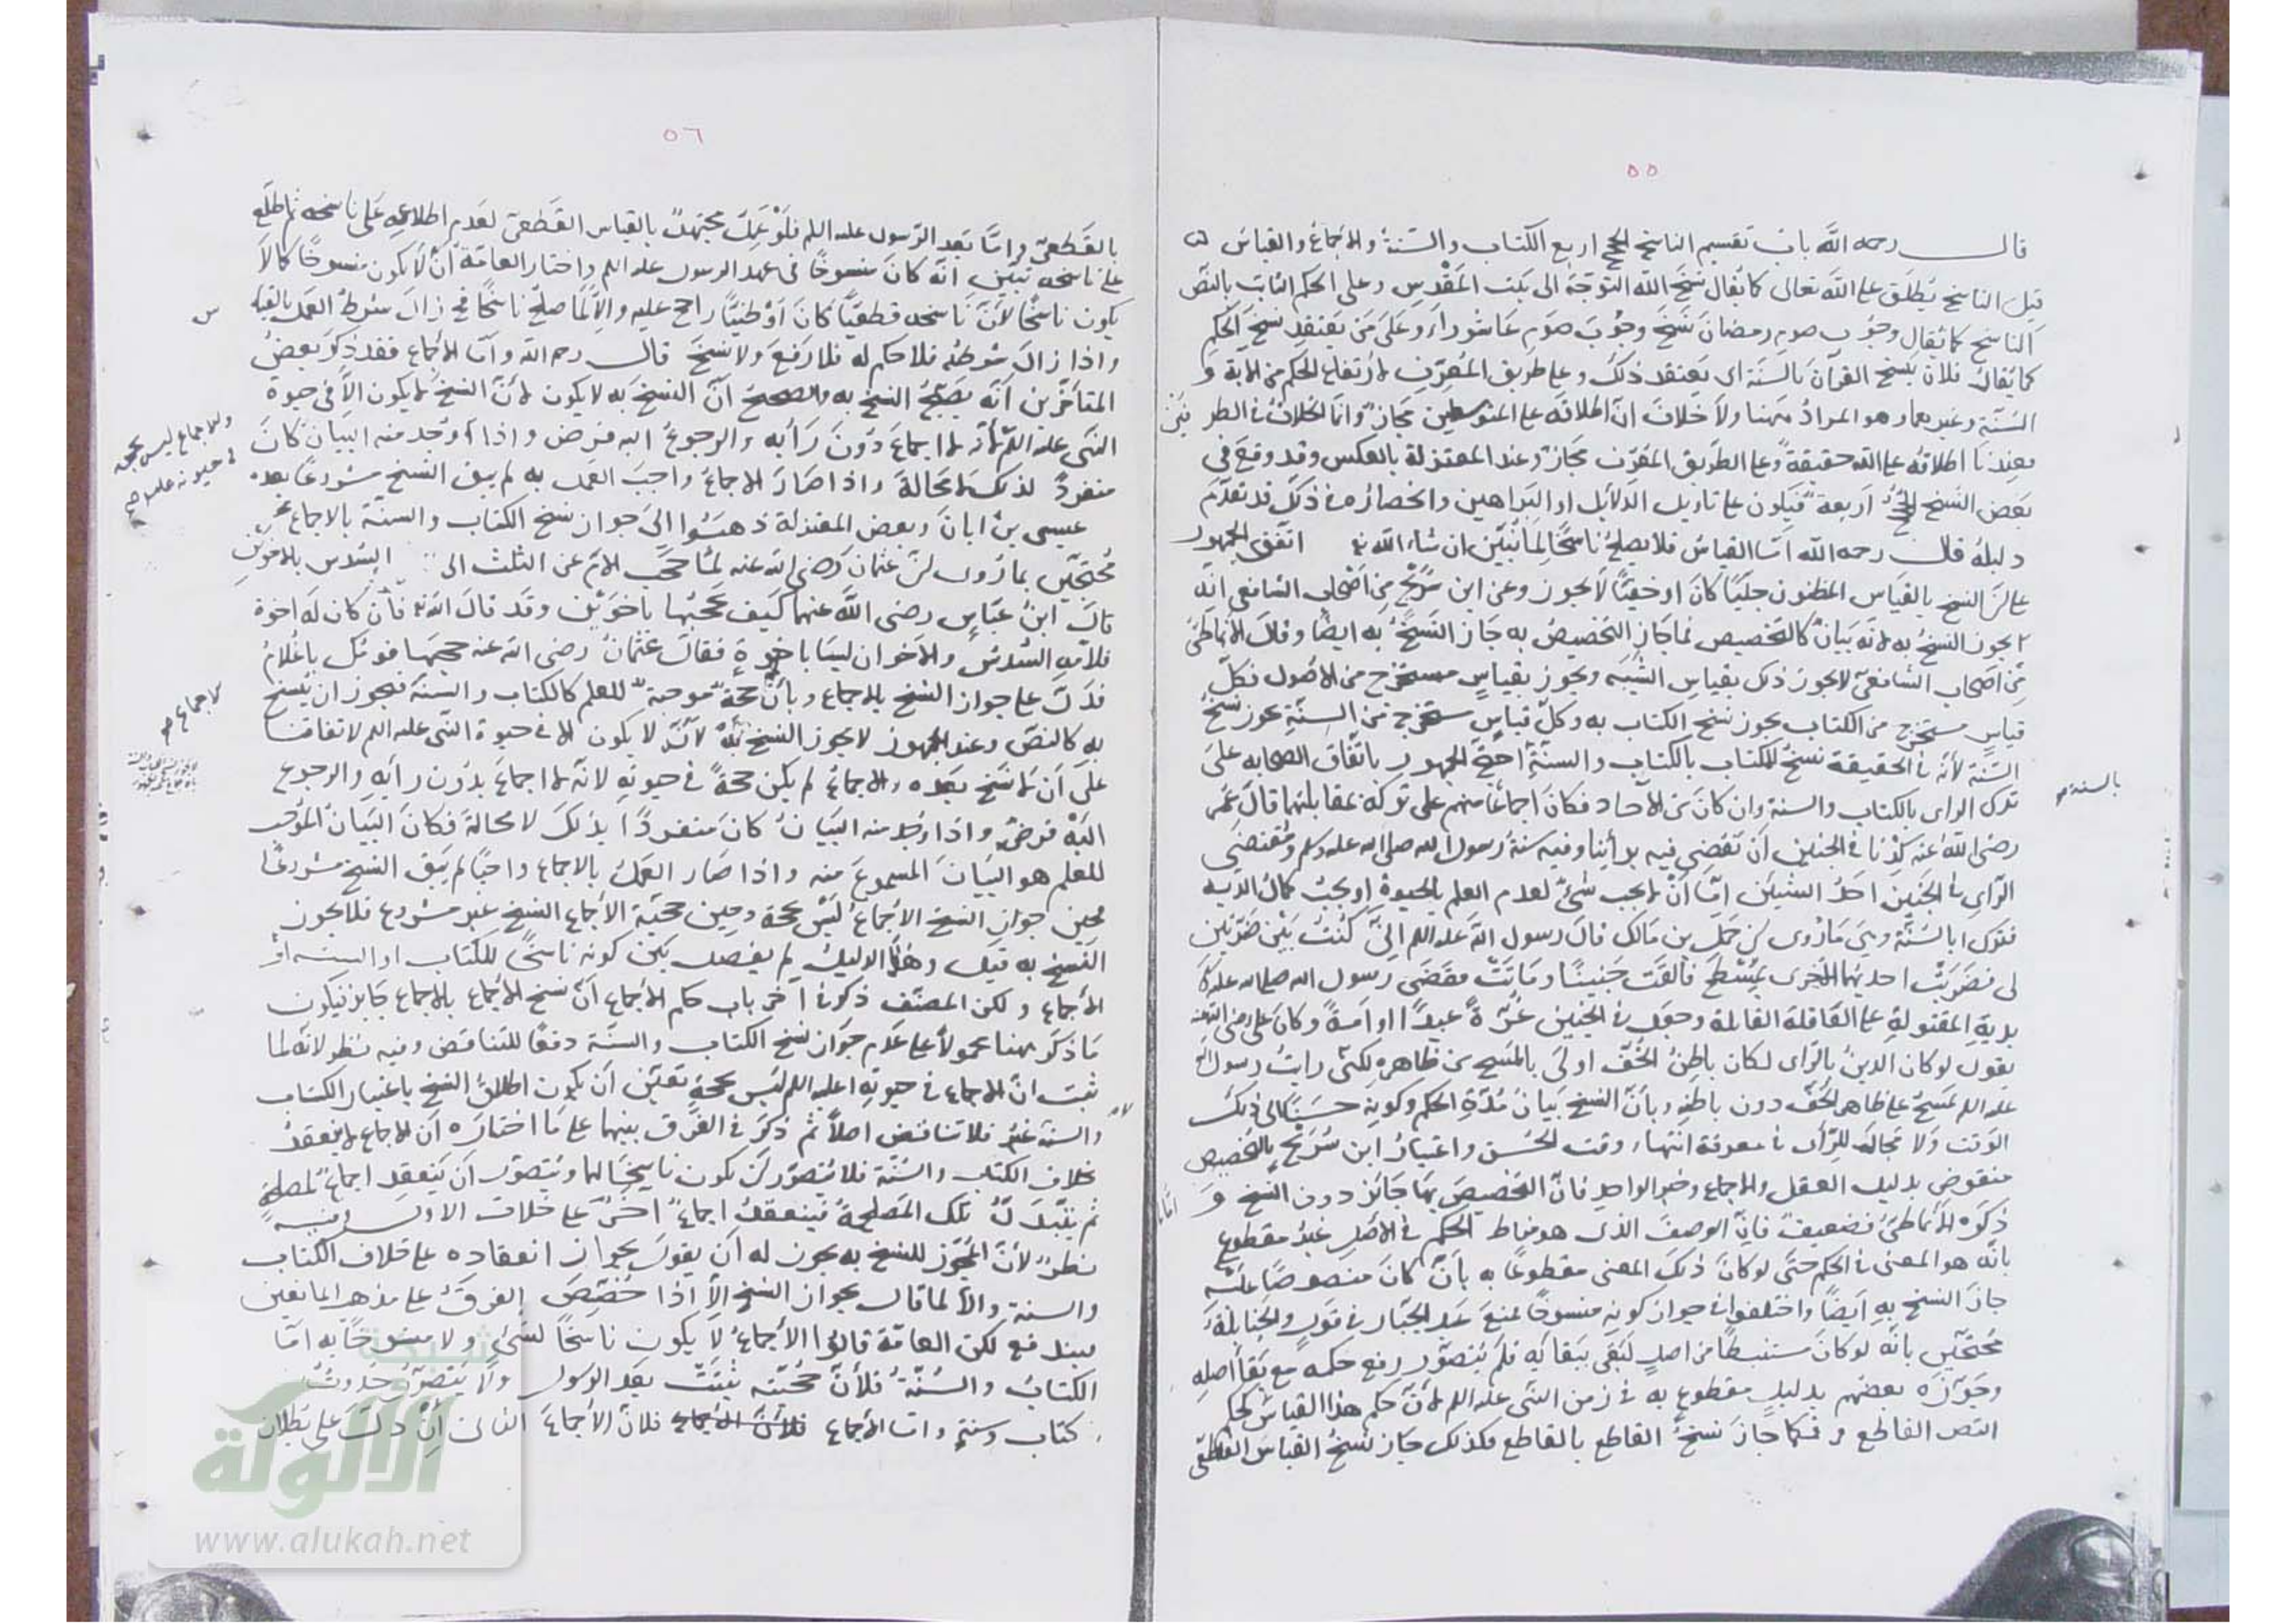 ٥٥
قال رحمه الله باب تقسيم الناسخ الحجج اربع الكتاب والسنة والاجماع والقياس
قيل الناسخ يطلق على الله تعالى كما يقال نسخ الله التوجه الى بيت المقدس وعلى الحكم الثابت بالنص
الناسخ كما يقال وجوب صوم رمضان نسخ وجوب صوم عاشوراء وعلى من يعتقد نسخ الحكم
كما يقال فلان ينسخ القرآن بالسنة اى يعتقد ذلك وعلى طريق المعرف لارتفاع الحكم من الآية و
السنة وغيرهما وهو المراد ههنا ولا خلاف ان اطلاقه على المتوسطين مجاز وانما الخلاف فى الطر فين
فعندنا اطلاقه على الله حقيقة وعلى الطريق المعرف مجاز وعند المعتزلة بالعكس وقد وقع فى
بعض النسخ الحجج اربعة فيكون على تاويل الدلايل او البراهين وانحصاره فى ذلك قد تقدم
دليله قال رحمه الله اما القياس فلا يصلح ناسخا لما نبين ان شاء الله اتفق الجمهور
على ان النسخ بالقياس المظنون جليا كان او خفيا لا يجوز وعن ابن سريج من اصحاب الشافعى انه
يجوز النسخ به لانه بيان كالتخصيص فما جاز التخصيص به جاز النسخ به ايضا وقال الانماطى
من اصحاب الشافعى لا يجوز ذلك بقياس الشبه ويجوز بقياس مستخرج من الاصول فكل
قياس مستخرج من الكتاب يجوز نسخ الكتاب به وكل قياس مستخرج من السنة يجوز نسخ
السنة لانه فى الحقيقة نسخ للكتاب بالكتاب والسنة احتج الجمهور باتفاق الصحابه على
بالسنة صح
ترك الراى بالكتاب والسنة وان كان من الآحاد فكان اجماعا منهم على تركه بمقابلتها قال عمر
رضى الله عنه كدنا فى الجنين ان نقضى فيه برأينا وفيه سنة رسول الله صلى الله عليه وسلم ومقتضى
الراى فى الجنين احد الشيئين اما ان لا يجب شئ لعدم العلم بالحيوة او يجب كمال الدية
فترك ابالسنة وهى ما روى ان حمل بن مالك قال رسول الله عليه السلم انى كنت بين ضرتين
لى فضربت احديهما الاخرى بمسطح فالقت جنينا وماتت فقضى رسول الله صلى الله عليه
بدية المقتولة على العاقلة القاتلة وجعل فى الجنين غرة عبدا او امة وكان على رضى الله عنه
يقول لو كان الدين بالراى لكان باطن الخف اولى بالمسح من ظاهره لكنى رايت رسول الله
عليه السلم يمسح على ظاهر الخف دون باطنه وبان النسخ بيان مدة الحكم وكونه حسنا الى ذلك
الوقت ولا مجال للرأى فى معرفة انتهاء وقت الحسن واعتبار ابن سريج بالتخصيص
منقوض بدليل العقل والاجماع وخبر الواحد فان التخصيص بها جائز دون النسخ و اما
ذكره الانماطى فضعيف فان الوصف الذى هو مناط الحكم فى الاصل غير مقطوع
بانه هو المعنى فى الحكم حتى لو كان ذلك المعنى مقطوعا به بان كان منصوصا عليه
جاز النسخ به ايضا واختلفوا فى جواز كونه منسوخا فمنع عبد الجبار فى قول والحنابلة
محتجين بانه لو كان مستنبطا من اصل لبقى ببقائه فلم يتصور رفع حكمه مع بقا اصله
وجوزه بعضهم بدليل مقطوع به فى زمن النبى عليه السلم لان حكم هذا القياس كحكم
النص القاطع و فكما جاز نسخ القاطع بالقاطع فكذلك جاز نسخ القياس القطعى
٥٦
بالقطعى واما بعد الرسول عليه السلم فلو عمل مجتهد بالقياس القطعى لعدم اطلاعه على ناسخه ثم اطلع
على ناسخه تبين انه كان منسوخا فى عهد الرسول عليه السلم واختار العامة ان لا يكون منسوخا كما لا
يكون ناسخا لان ناسخه قطعيا كان او ظنيا راجح عليه والا لما صلح ناسخا فح زال شرط العمل بالقيا
س
واذا زال شرطه فلا حكم له فلا رفع ولا نسخ قال رحمه الله واما الاجماع فقد ذكر بعض
المتاخرين انه يصح النسخ به والصحيح ان النسخ به لا يكون لان النسخ لا يكون الا فى حيوة
والاجماع ليس بحجة
فى حيوته عليه السلم صح
النبى عليه السلم لانه لا اجماع دون رأيه والرجوع اليه فرض واذا وجد منه البيان كان
منفردا لذلك لا محالة واذا صار الاجماع واجب العمل به لم يبق النسخ مشروعا بعده
عيسى بن ابان وبعض المعتزلة ذهبوا الى جواز نسخ الكتاب والسنة بالاجماع
محتجين بما روى ان عثمان رضى الله عنه لما حجب الام عن الثلث الى السدس بالاخوين
قال ابن عباس رضى الله عنهما كيف تحجبها باخوين وقد قال الله فان كان له اخوة
فلامه السدس والاخوان ليسا باخوة فقال عثمان رضى الله عنه حجبها قومك يا غلام
فدل على جواز النسخ بالاجماع وبأن حجة موجبة للعلم كالكتاب والسنة فيجوز ان ينسخ
الاجماع صح
به كالنص وعند الجمهور لا يجوز النسخ به لانه لا يكون الا فى حيوة النبى عليه السلم لاتفاقنا
على ان لا نسخ بعده والاجماع لم يكن حجة فى حيوته لانه لا اجماع بدون رأيه والرجوع
اليه فرض واذا وجد منه البيان كان منفردا بذلك لا محالة فكان البيان الموجب
للعلم هو البيان المسموع منه واذا صار العمل بالاجماع واجبا لم يبق النسخ مشروعا
فحين جواز النسخ الاجماع ليس بحجة وحين حجية الاجماع النسخ غير مشروع فلا يجوز
النسخ به قيل وهذا الدليل لم يفصل بين كونه ناسخا للكتاب او السنة او
الاجماع ولكن المصنف ذكر فى آخر باب حكم الاجماع ان نسخ الاجماع بالاجماع جايز فيكون
ما ذكر ههنا محمولا على عدم جواز نسخ الكتاب والسنة دفعا للتناقض وفيه نظر لانه لما
ثبت ان الاجماع فى حيوته عليه السلم ليس بحجة تعين ان يكون اطلاق النسخ باعتبار الكتاب
والسنة غير فلا تناقض اصلا ثم ذكر فى الفرق بينهما على ما اختاره ان الاجماع لا ينعقد
بخلاف الكتاب والسنة فلا يتصور ان يكون ناسخا لهما ويتصور ان ينعقد اجماع لمصلحة
ثم تتبدل تلك المصلحة فينعقد اجماع اخر على خلاف الاول وفيه
نظر لان المجوز للنسخ به يجوز له ان يقول بجواز انعقاده على خلاف الكتاب
والسنة والا لما قال بجواز النسخ الا اذا خصص الفرق على مذهب المانعين
فيندفع لكن العامة قالوا الاجماع لا يكون ناسخا لشئ ولا منسوخا به اما
الكتاب والسنة فلأن حجيته ثبتت بعد الرسول ولا يتصور حدوث
كتاب وسنة واما الاجماع فلان الاجماع الثانى ان دل على بطلان
شبكة
الألوكة
www.alukah.net